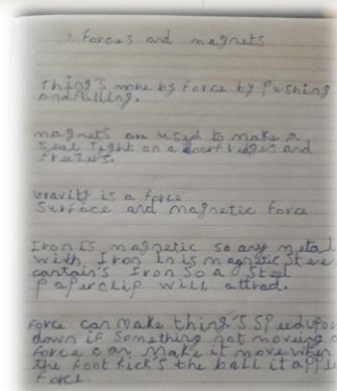 Forces and magnets
Thing's move by force by pushing
and Pulling.
magnets are used to make a
Seal Tight on a door fridges and
freezers.
Gravity is a force
Surface and magnetic force
Iron is magnetic so any metal
with Iron in is magnetic Steel
contain's Iron So a Steel
paperclip will attrad.
Force can make thing's Speed up or
down if Something not moving a
force can make it move when
the foot kick's the ball it
Force.